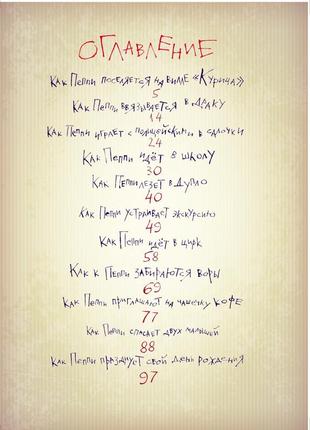 ОГЛАВЛЕНИЕ
Как Пеппи поселяется на вилле «Курица»
5
Как Пеппи ввязывается в драку
14
Как Пеппи играет с полицейскими в салочки
24
Как Пеппи идёт в школу
30
Как Пеппи лезет в дупло
40
Как Пеппи устраивает экскурсию
49
Как Пеппи идёт в цирк
58
Как к Пеппи забираются воры
69
Как Пеппи приглашают на чашечку кофе
77
Как Пеппи спасает двух малышей
88
Как Пеппи празднует свой день рождения
97